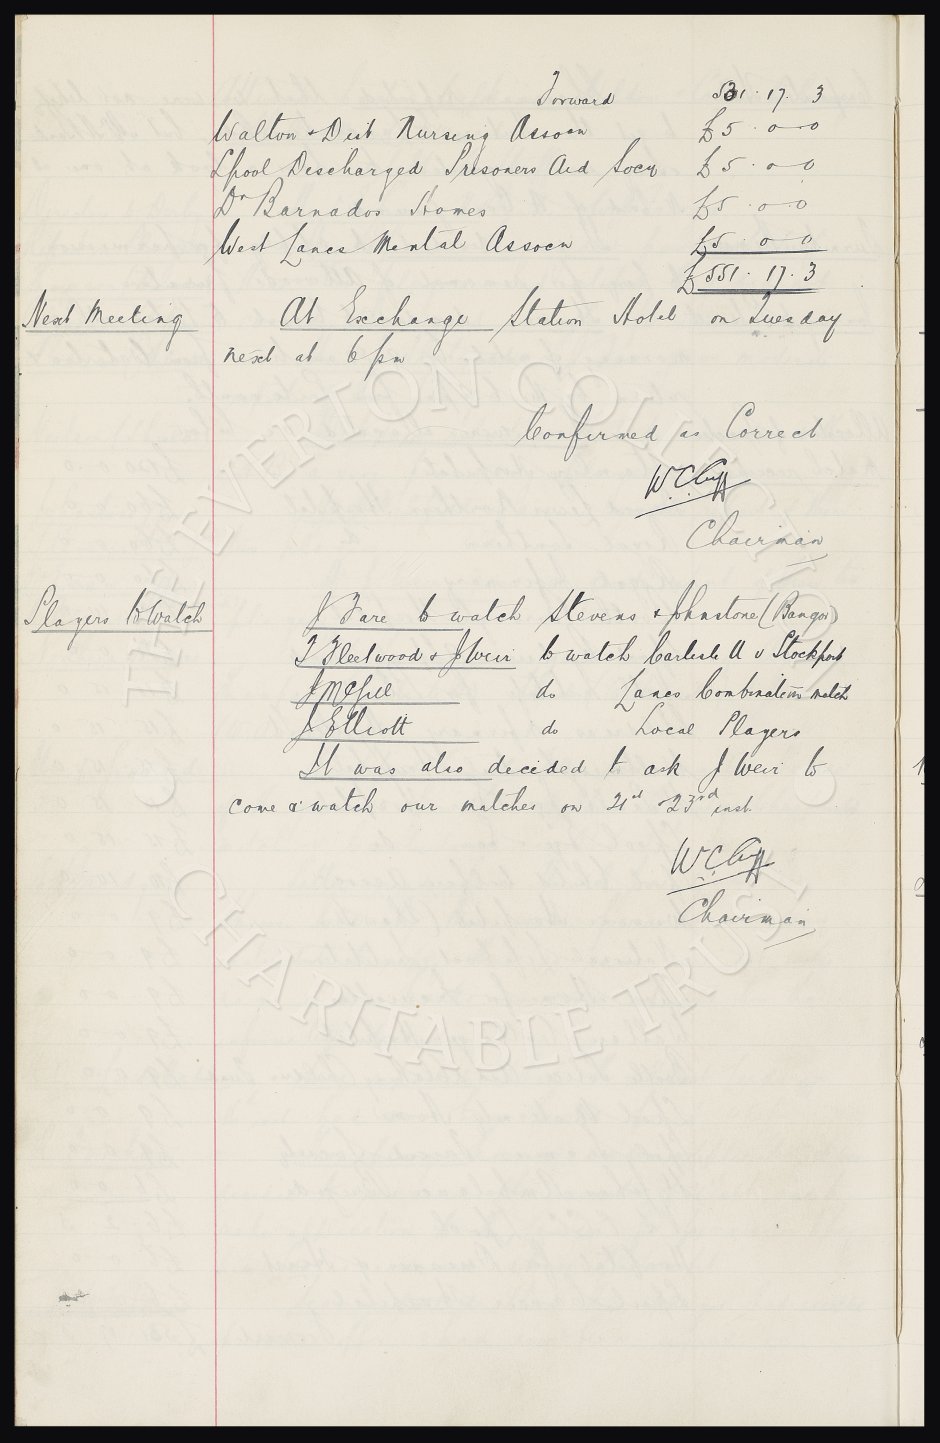 Forward 531 . 17 . 3
Walton & Dist Nursing Assocn £5 . 0 - 0
Lpool Discharged Prisoners Aid Socy £5 . 0 - 0
Dr Barnados Homes £5 . 0 - 0
West Lancs Mental Assocn £5 . 0 0
£551 . 17 . 3
Next Meeting At Exchange Station Hotel on Tuesday
next at 6 pm
Confirmed as Correct
W.C. Cuff
Chairman
Players to Watch J Fare to watch Stevens & Johnstone (Bangor)
T Fleetwood & J Weir to watch Carlisle U v Stockport
J McGill do Lancs Combination match
J Elliott do Local Players
It was also decided to ask J Weir to
come & watch our matches on 21st & 23rd inst.
W.C. Cuff
Chairman
THE EVERTON COLLECTION
CHARITABLE TRUST